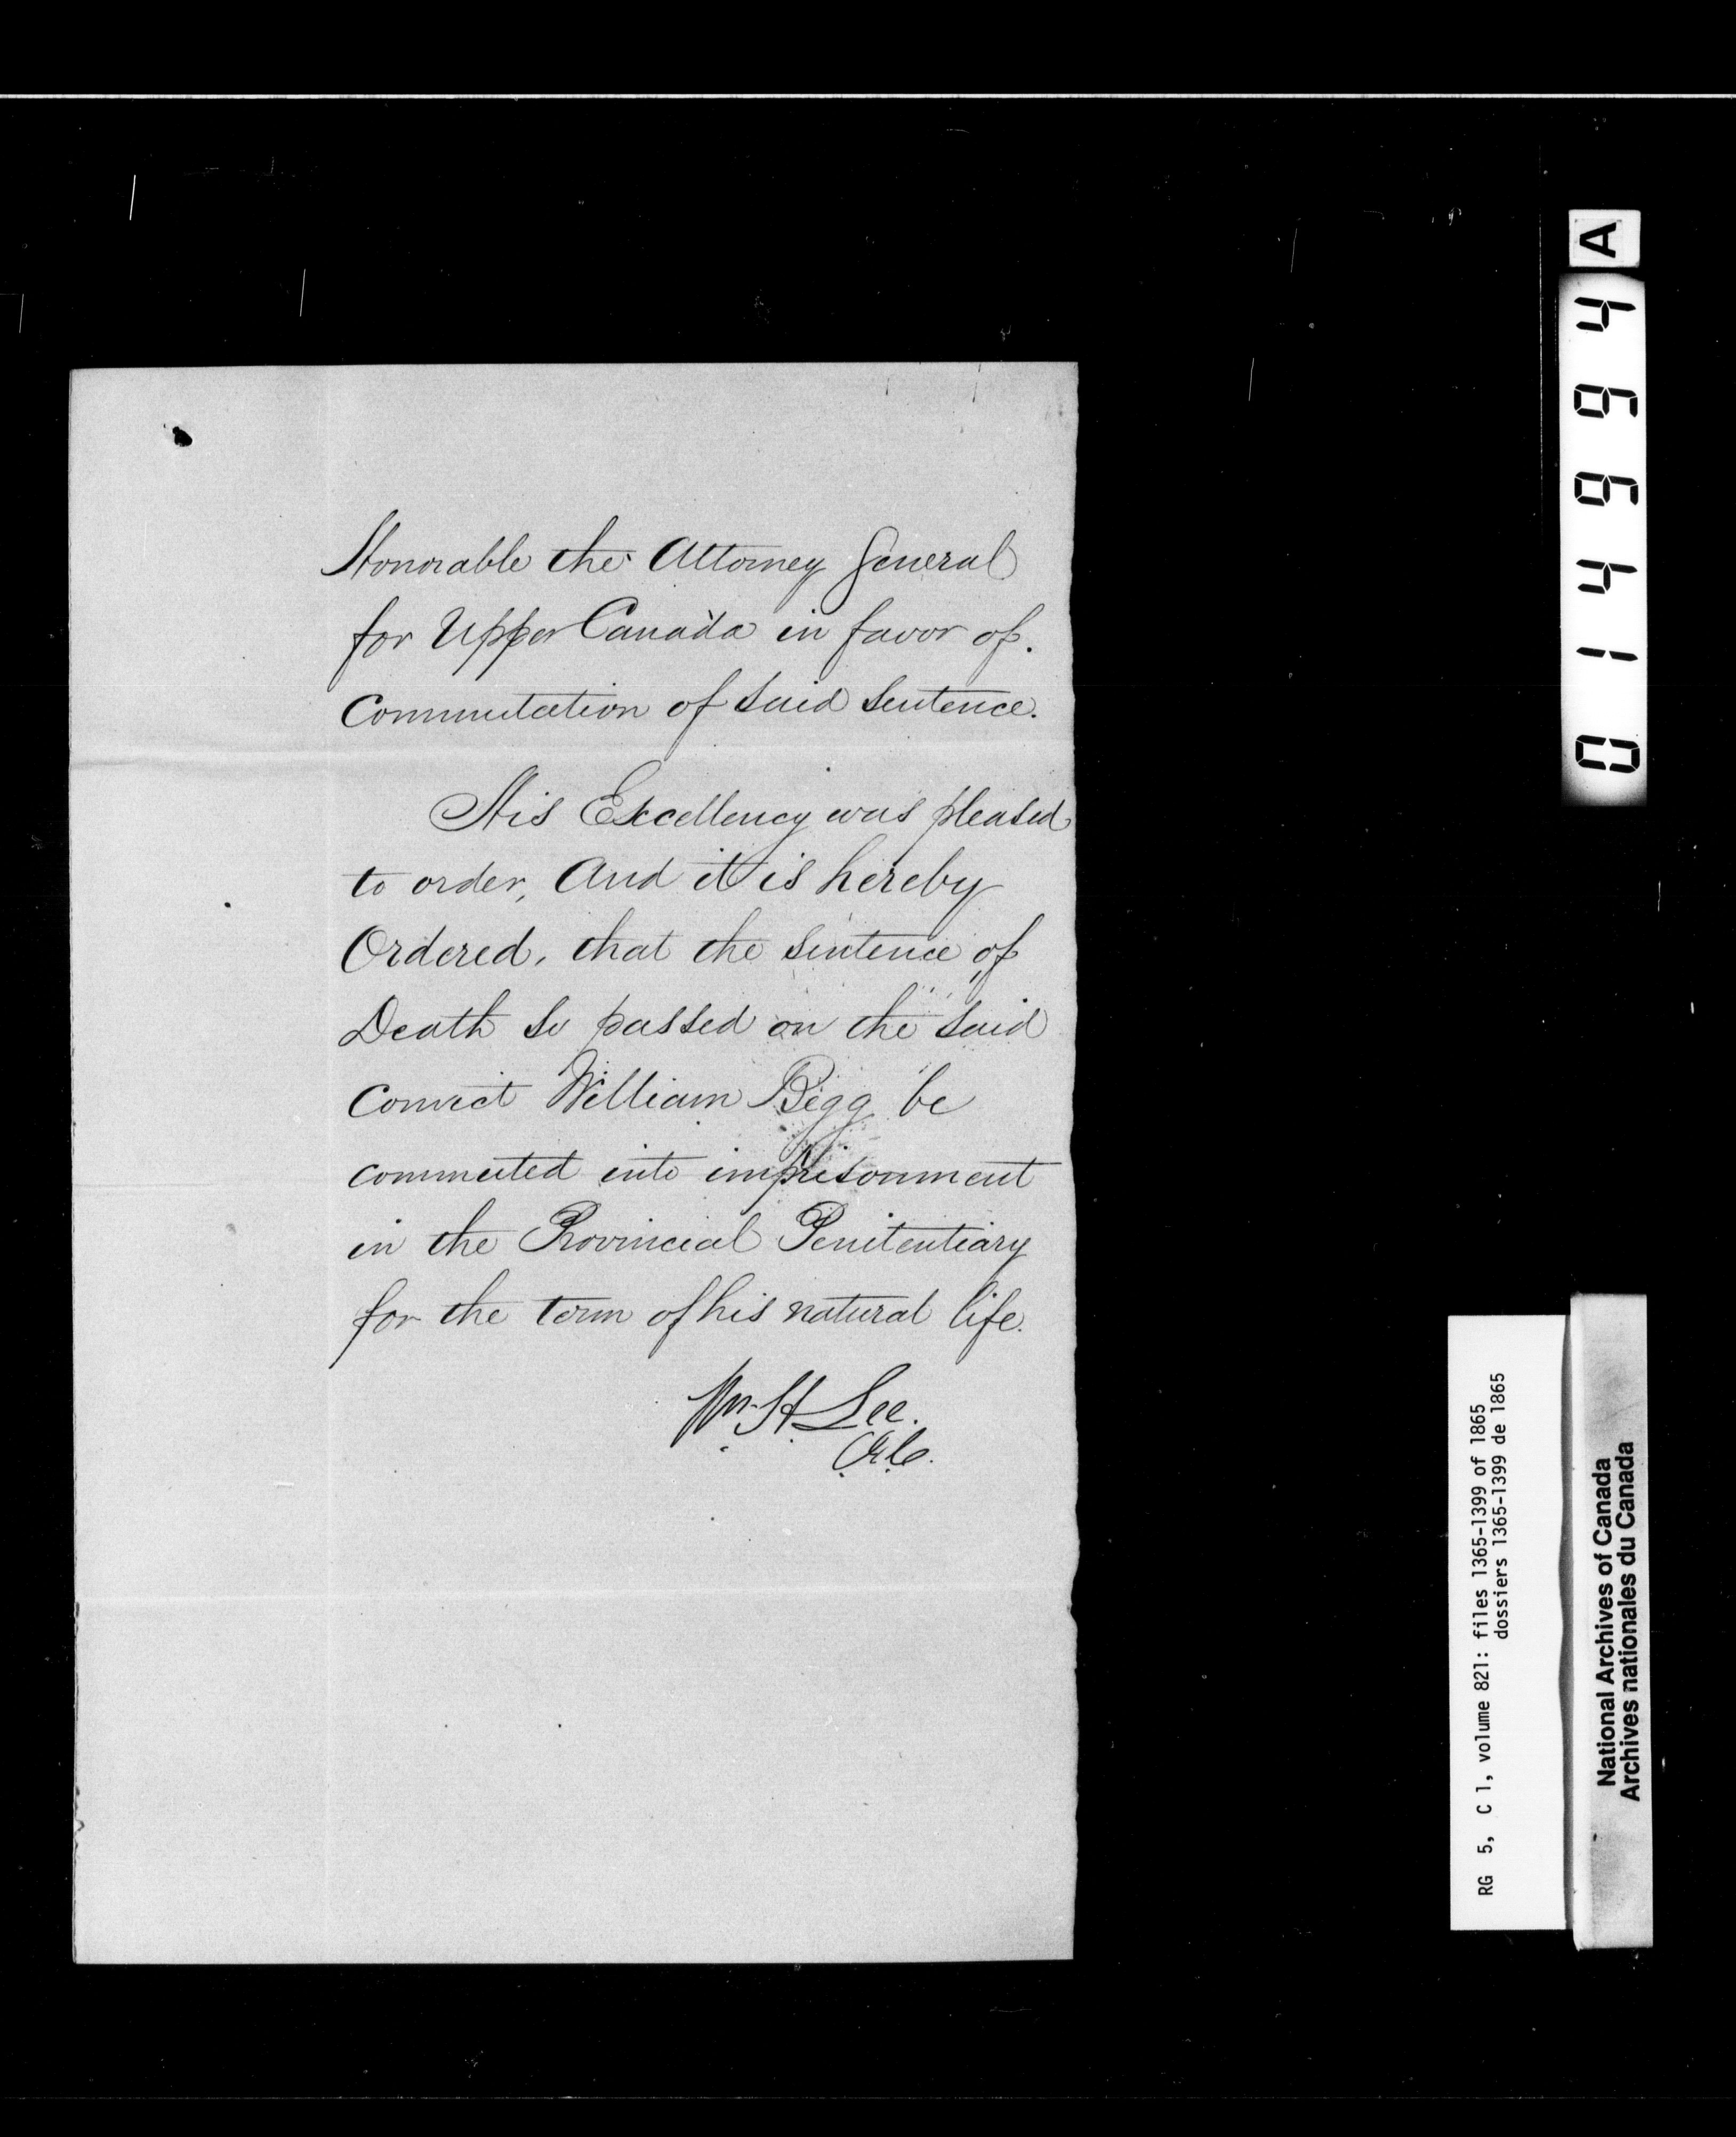 Honorable the Attorney General
for Upper Canada in favor of.
Commutation of said Sentence.
His Excellency was pleased
to order, And it is hereby
Ordered, that the Sentence of
Death so passed on the said
Convict William Bigg be
commuted into imprisonment
in the Provincial Penitentiary
for the term of his natural life.
Wm. H. Lee.
C.E.C.
A
014994
RG 5, C 1, volume 821: files 1365-1399 of 1865
dossiers 1365-1399 de 1865
National Archives of Canada
Archives nationales du Canada